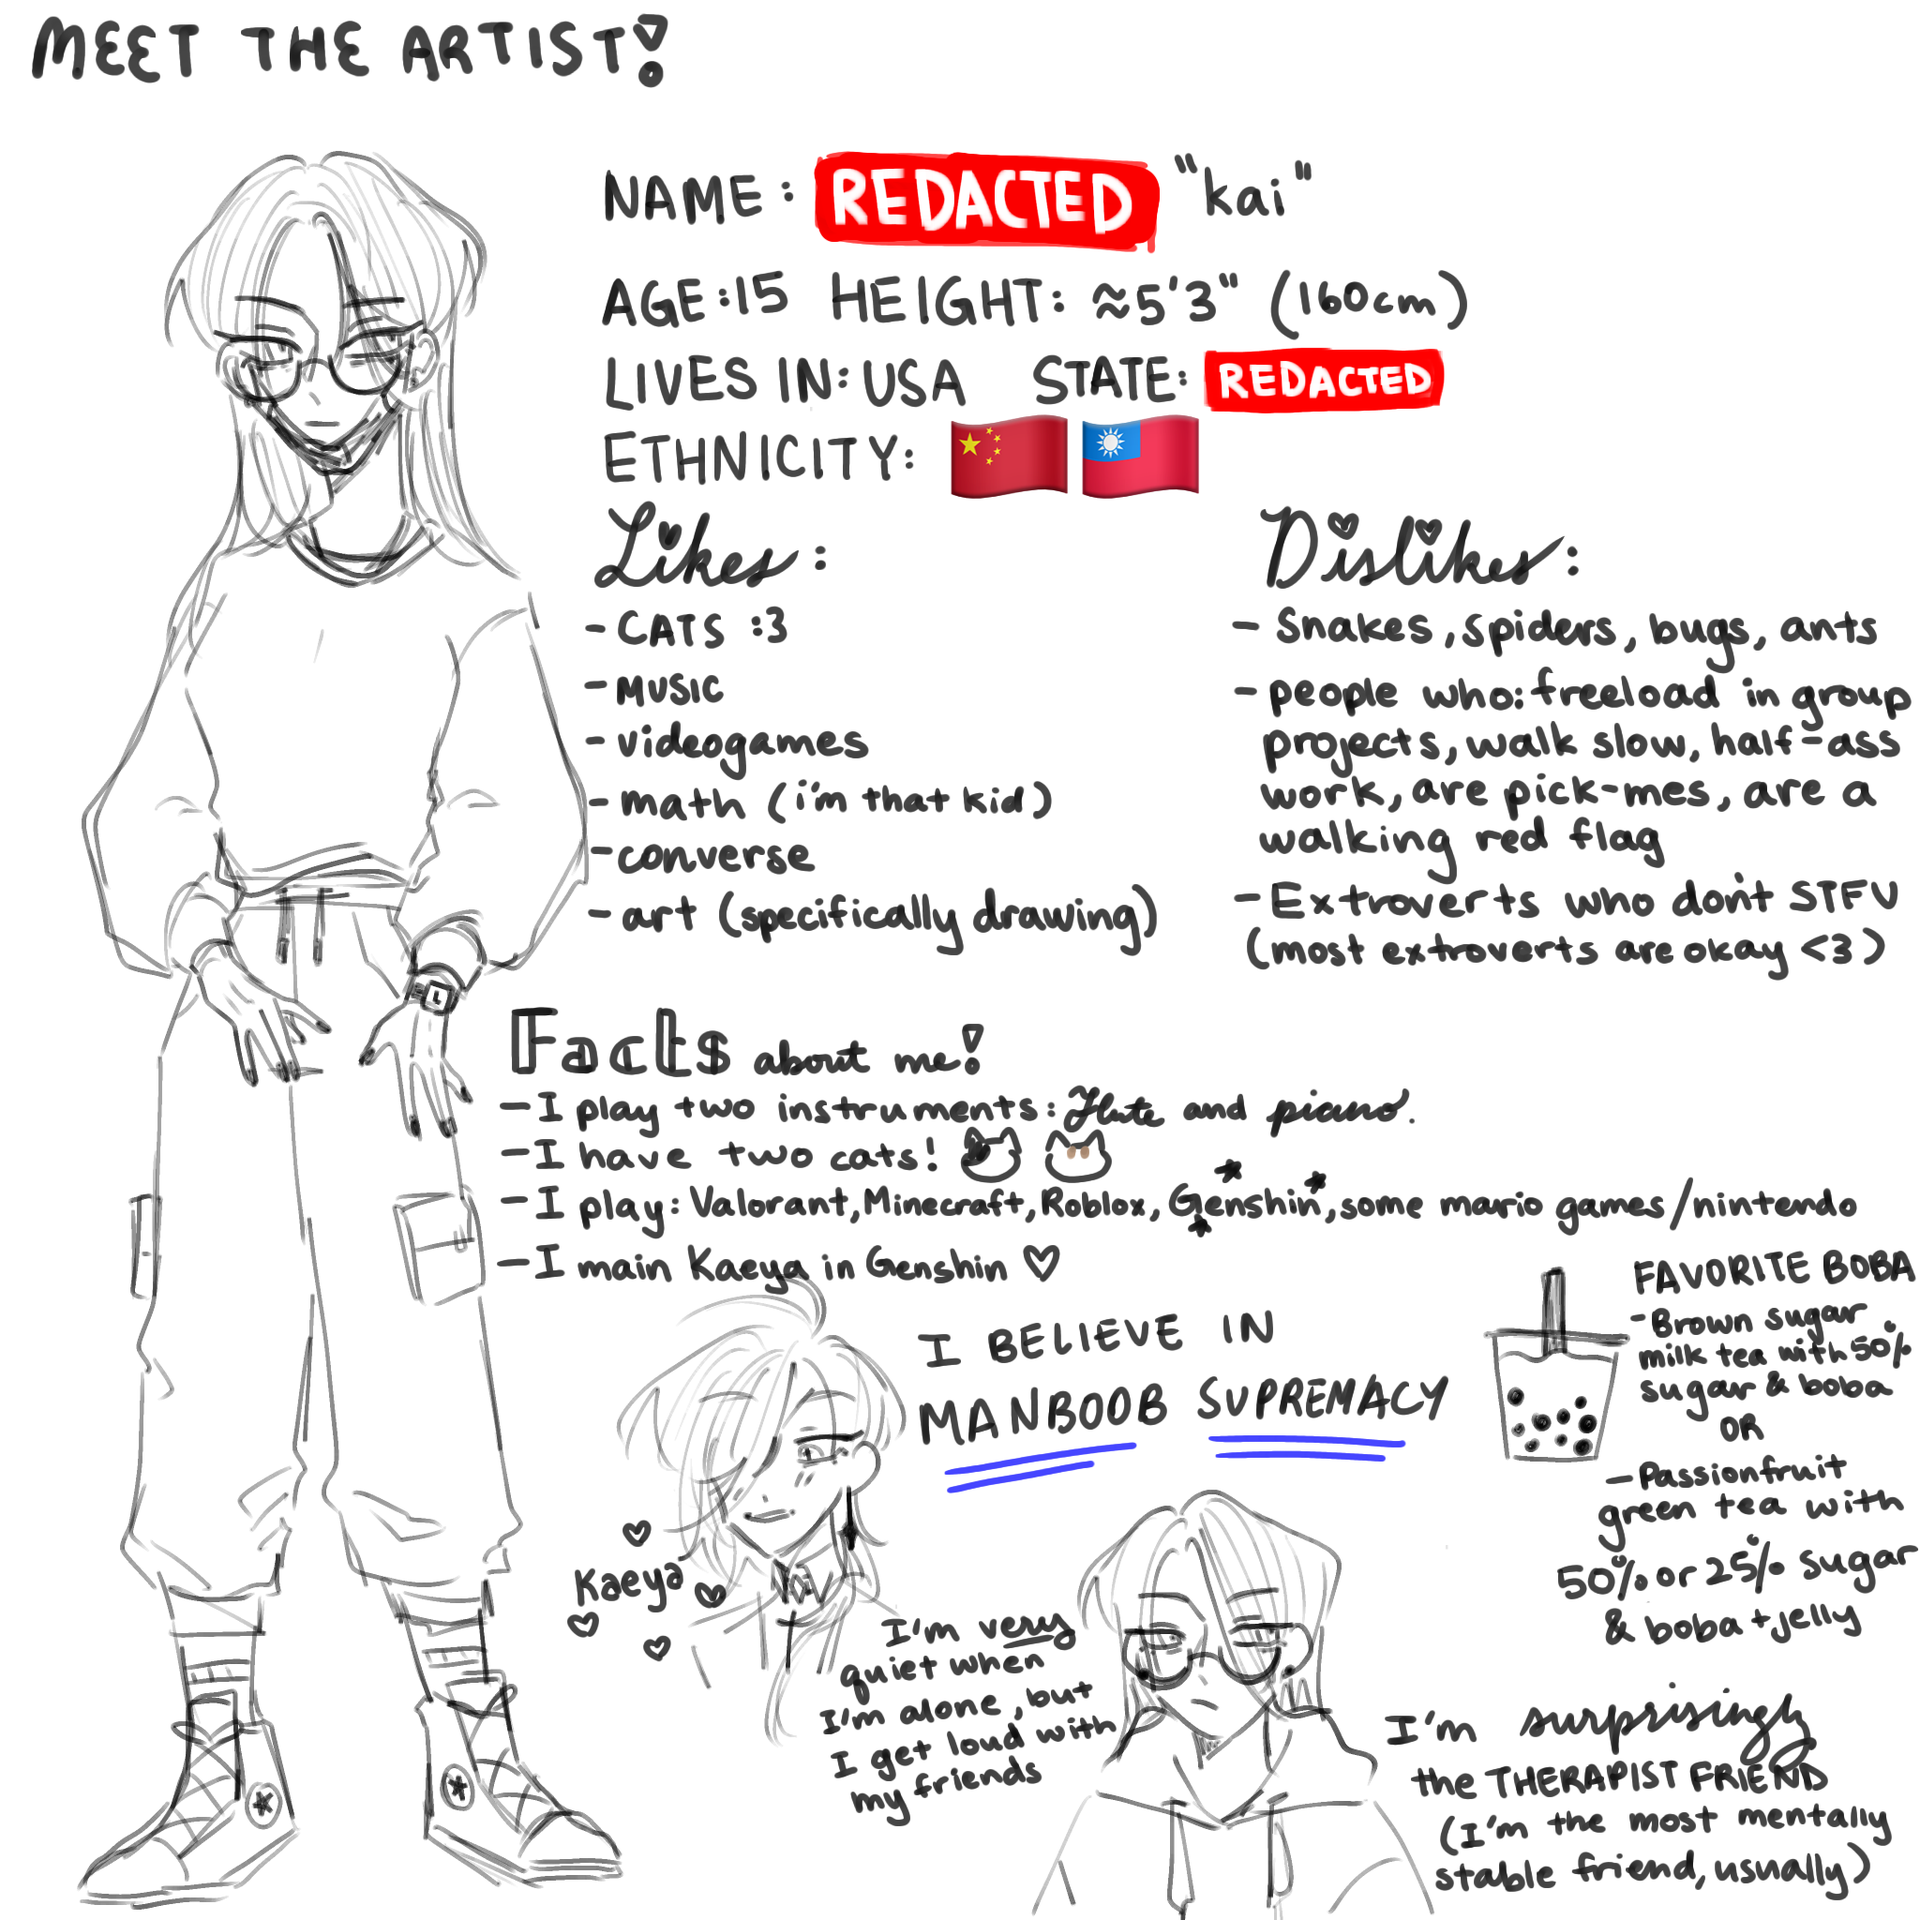 MEET THE ARTIST!
NAME: REDACTED "kai"
AGE:15 HEIGHT: ≈5'3" (160cm)
LIVES IN: USA STATE: REDACTED
ETHNICITY: 🇨🇳 🇹🇼
Likes:
- CATS :3
- MUSIC
- videogames
- math (i'm that kid)
- converse
- art (specifically drawing)
Dislikes:
- Snakes, spiders, bugs, ants
- people who: freeload in group
projects, walk slow, half-ass
work, are pick-mes, are a
walking red flag
- Extroverts who don't STFU
(most extroverts are okay <3)
Facts about me!
- I play two instruments: flute and piano.
- I have two cats!
- I play: Valorant, Minecraft, Roblox, Genshin, some mario games/nintendo
- I main Kaeya in Genshin ♡
I BELIEVE IN
MANBOOB SUPREMACY
Kaeya
FAVORITE BOBA
- Brown sugar
milk tea with 50%
sugar & boba
OR
- Passionfruit
green tea with
50% or 25% sugar
& boba + jelly
I'm very
quiet when
I'm alone, but
I get loud with
my friends
I'm surprisingly
the THERAPIST FRIEND
(I'm the most mentally
stable friend, usually)